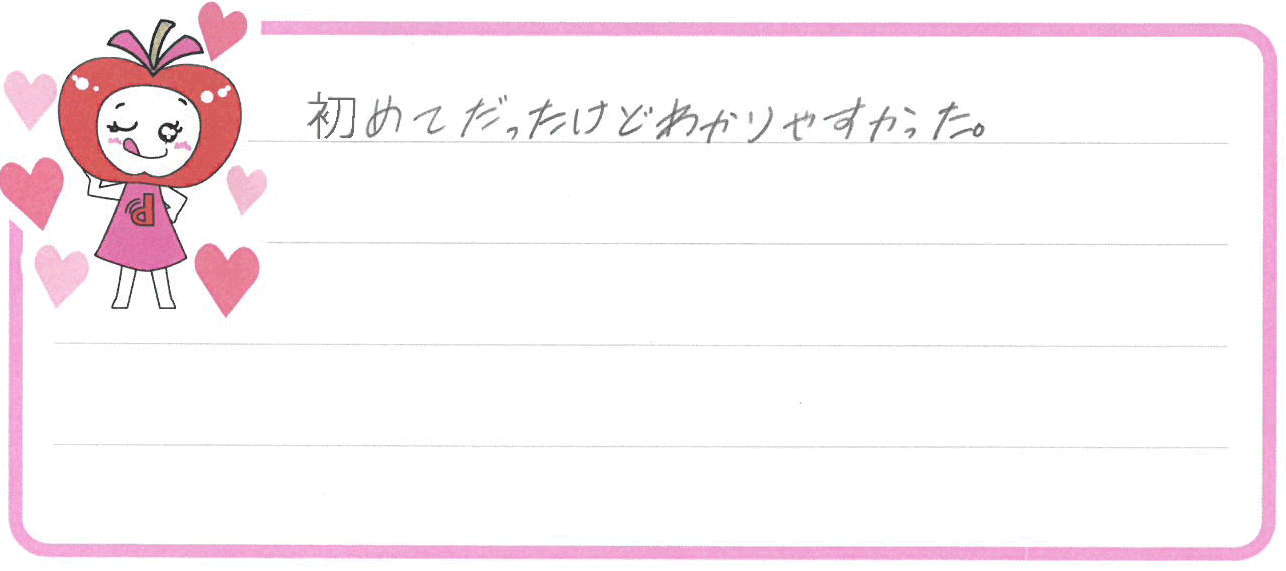 初めてだったけどわかりやすかった。